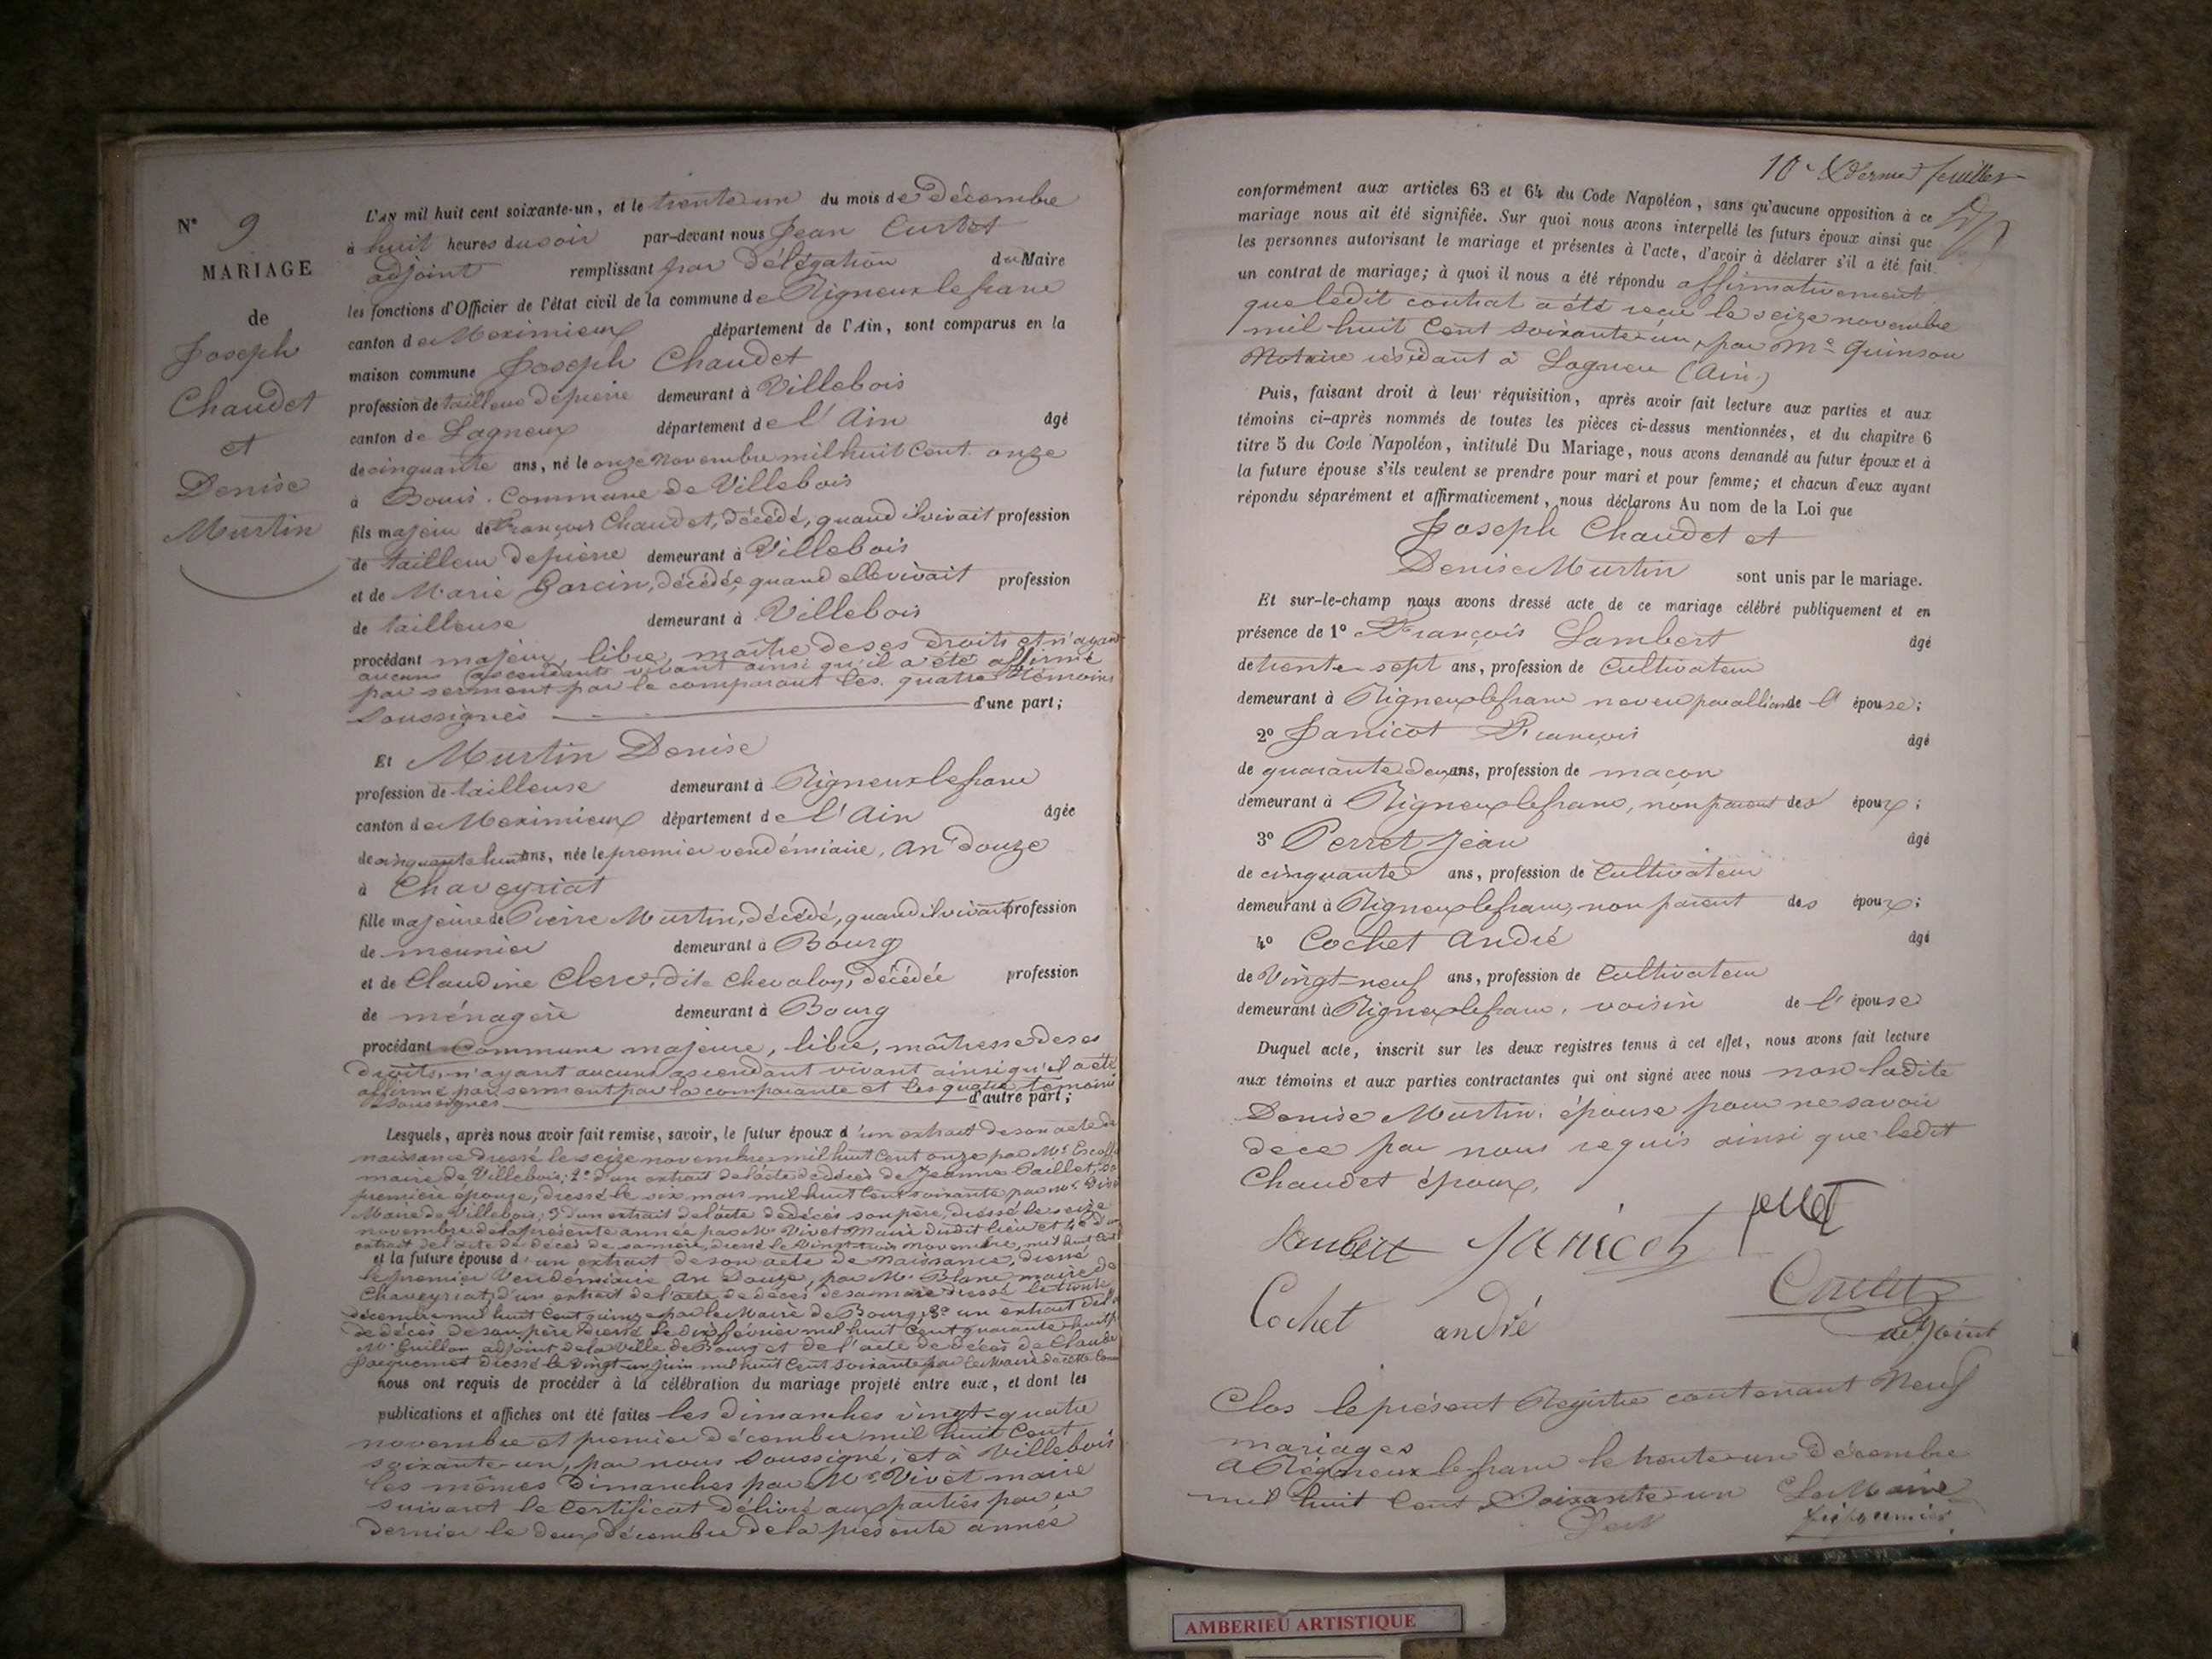 N° 9
MARIAGE
de
Joseph
Chaudet
et
Denise
Murtin
L'AN mil huit cent soixante-un, et le trente un du mois de Décembre
à huit heures du soir par-devant nous Jean Curtet
adjoint remplissant par Délégation du Maire
les fonctions d'Officier de l'état civil de la commune de Rigneux le franc
canton de Meximieux département de l'Ain, sont comparus en la
maison commune Joseph Chaudet
profession de tailleur de pierre demeurant à Villebois
canton de Lagneux département de l'Ain âgé
de cinquante ans, né le onze Novembre mil huit Cent onze
à Bouis. Commune de Villebois
fils majeur de François Chaudet, décédé, quand il vivait profession
de tailleur de pierre demeurant à Villebois
et de Marie Garcin, décédée, quand elle vivait profession
de tailleuse demeurant à Villebois
procédant majeur, libre, maître de ses droits et n'ayant
aucuns ascendants vivant ainsi qu'il a été affirmé
par serment par le comparant les quatre témoins
Soussignés d'une part;
Et Murtin Denise
profession de tailleuse demeurant à Rigneux le franc
canton de Meximieux département de l'Ain âgée
de cinquante huit ans, née le premier vendémiaire, An Douze
à Chaveyriat
fille majeure de Pierre Murtin, décédé, quand il vivait profession
de meunier demeurant à Bourg
et de Claudine Clerc, dite Chevalon, décédée profession
de ménagère demeurant à Bourg
procédant Comme majeure, libre, maîtresse de ses
Droits, n'ayant aucuns ascendant vivant ainsi qu'il a été
affirmé par serment par la comparante et les quatre témoins
Soussignés d'autre part;
Lesquels, après nous avoir fait remise, savoir, le futur époux d'un extrait de son acte de
naissance dressé le seize novembre mil huit Cent onze par Mr
maire de Villebois; 2° d'un extrait de l'acte de décès de Jeanne Paillet, sa
première épouse, dressé le six mars mil huit Cent soixante par Mr
Maire de Villebois; 3° d'un extrait de l'acte de décès son père, dressé le seize
novembre de la présente année par Mr Vivet Maire dudit lieu et 4° d'un
extrait de l'acte de décès de sa mère, dressé le vingt trois novembre, mil huit Cent
et la future épouse d'un extrait de son acte de Naissance, dressé
le premier Vendémiaire An Douze, par Mr Blanc maire de
Chaveyriat, d'un extrait de l'acte de décès de sa mère dressé le trente
décembre mil huit Cent quinze par le Maire de Bourg; 3° un extrait de
de décès de son père dressé le dix février mil huit Cent quarante huit
Mr Guillon adjoint de la Ville de Bourg et de l'acte de décès de Claude
Jacquemet dressé le vingt-un juin mil huit Cent soixante par le Maire de cette
nous ont requis de procéder à la célébration du mariage projeté entre eux, et dont les
publications et affiches ont été faites les dimanches vingt-quatre
novembre et premier décembre mil huit Cent
soixante-un, par nous soussigné, et à Villebois
les mêmes Dimanches par Mr Vivet maire
suivant le Certificat délivré aux parties par ce
dernier le deux décembre de la présente année
10e & dernier feuillet
conformément aux articles 63 et 64 du Code Napoléon, sans qu'aucune opposition à ce
mariage nous ait été signifiée. Sur quoi nous avons interpellé les futurs époux ainsi que
les personnes autorisant le mariage et présentes à l'acte, d'avoir à déclarer s'il a été fait
un contrat de mariage; à quoi il nous a été répondu affirmativement
que ledit contrat a été reçu le seize novembre
mil huit Cent soixante-un, par Me Quinson
Notaire résidant à Lagneu (Ain)
Puis, faisant droit à leur réquisition, après avoir fait lecture aux parties et aux
témoins ci-après nommés de toutes les pièces ci-dessus mentionnées, et du chapitre 6
titre 5 du Code Napoléon, intitulé Du Mariage, nous avons demandé au futur époux et à
la future épouse s'ils veulent se prendre pour mari et pour femme; et chacun d'eux ayant
répondu séparément et affirmativement, nous déclarons Au nom de la Loi que
Joseph Chaudet et
Denise Murtin sont unis par le mariage.
Et sur-le-champ nous avons dressé acte de ce mariage célébré publiquement et en
présence de 1° François Lambert âgé
de trente-sept ans, profession de Cultivateur
demeurant à Rigneux le franc neveu par alliance de l'épouse;
2° Janicot François âgé
de quarante deux ans, profession de maçon
demeurant à Rigneux le franc, non parent des époux;
3° Perret Jean âgé
de cinquante ans, profession de Cultivateur
demeurant à Rigneux le franc, non parent des époux;
4° Cochet André âgé
de Vingt-neuf ans, profession de Cultivateur
demeurant à Rigneux le franc, voisin de l'épouse
Duquel acte, inscrit sur les deux registres tenus à cet effet, nous avons fait lecture
aux témoins et aux parties contractantes qui ont signé avec nous non ladite
Denise Murtin, épouse pour ne savoir
de ce par nous requis ainsi que ledit
Chaudet époux,
Lambert Janicot Perret
Cochet andré Curtet
adjoint
Clos le présent Registre contenant Neuf
mariages
A Rigneux le franc le trente un Décembre
mil huit Cent Soixante-un Le Maire
AMBERIEU ARTISTIQUE